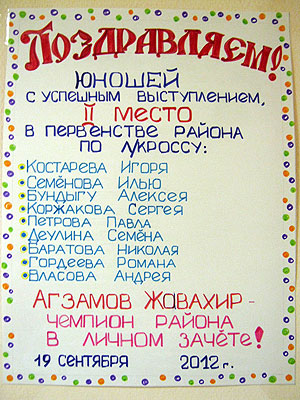 Поздравляем!
юношей
с успешным выступлением,
II место
в первенстве района
по л/кроссу:
Костарева Игоря
Семёнова Илью
Бундыгу Алексея
Коржакова Сергея
Петрова Павла
Деулина Семёна
Баратова Николая
Гордеева Романа
Власова Андрея
Агзамов Жавахир -
чемпион района
в личном зачёте!
19 сентября 2012г.